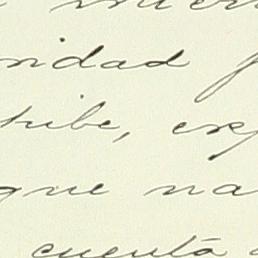 nidad
tribe, exp
que na
cuenta